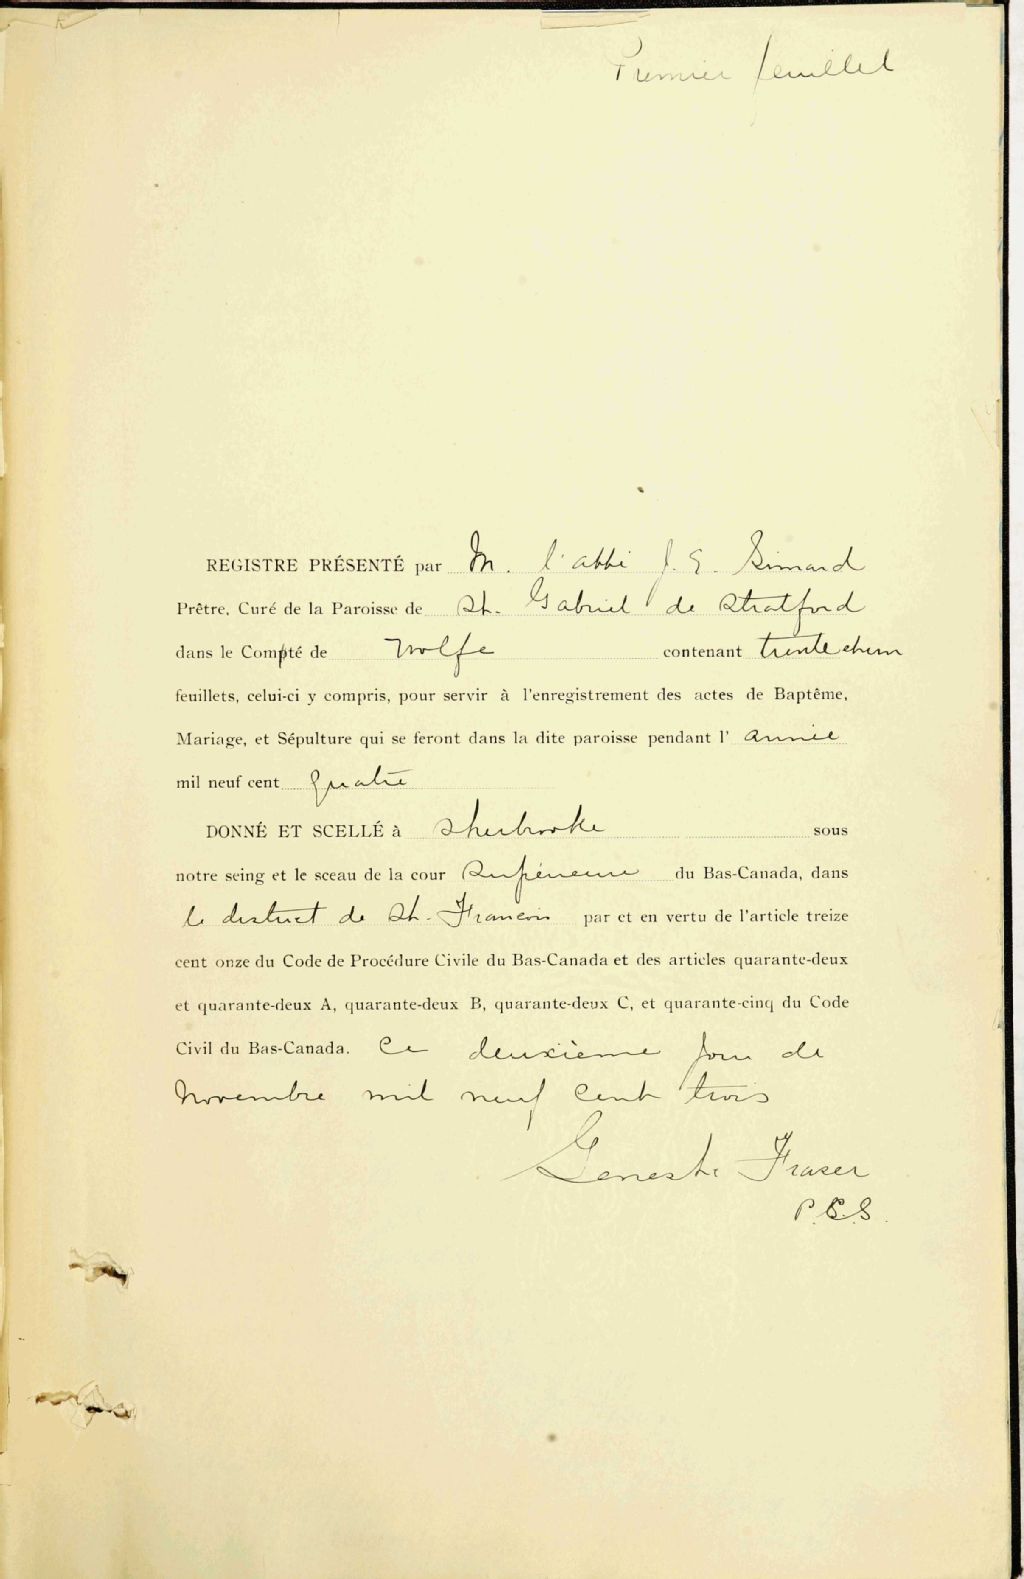 Premier feuillet
REGISTRE PRÉSENTÉ par M. l'abbé J. E. Simard
Prêtre, Curé de la Paroisse de St. Gabriel de Stratford
dans le Compté de Wolfe contenant trente
feuillets, celui-ci y compris, pour servir à l'enregistrement des actes de Baptême,
Mariage, et Sépulture qui se feront dans la dite paroisse pendant l' année
mil neuf cent quatre
DONNÉ ET SCELLÉ à Sherbrooke sous
notre seing et le sceau de la cour Supérieure du Bas-Canada, dans
le district de St. François par et en vertu de l'article treize
cent onze du Code de Procédure Civile du Bas-Canada et des articles quarante-deux
et quarante-deux A, quarante-deux B, quarante-deux C, et quarante-cinq du Code
Civil du Bas-Canada. Ce deuxième jour de
Novembre mil neuf cent trois
Geneste Fraser
P.C.S.